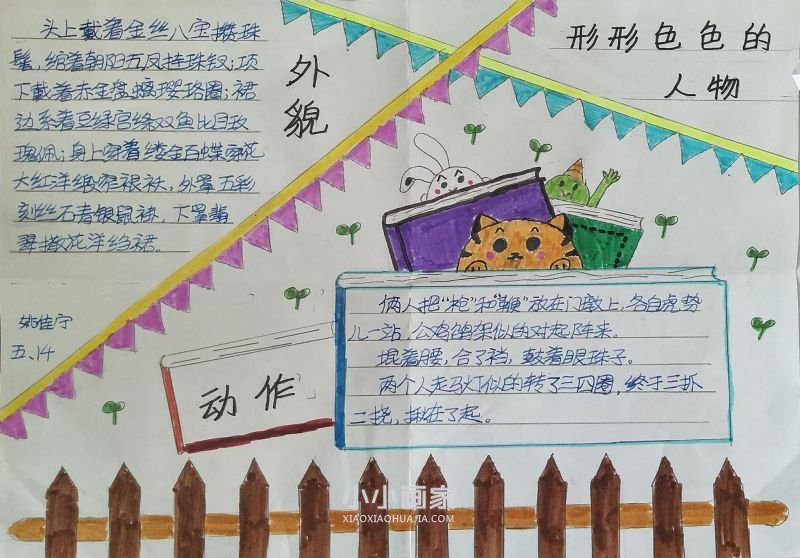 形形色色的
人物
外貌
头上戴着金丝八宝攒珠
髻，绾着朝阳五凤挂珠钗；项
下戴着赤金盘螭璎珞圈；裙
边系着豆绿宫绦双鱼比目玫
瑰佩；身上穿着缕金百蝶穿花
大红洋缎窄裉袄，外罩五彩
刻丝石青银鼠褂，下罩翡
翠撒花洋绉裙。
姚佳宁
五、14
动作
俩人把“枪”和“鞭”放在门墩上，各自虎势
儿一站，公鸡鹐架似的对起阵来。
棍着腰，合了裆，鼓着眼珠子。
两个人走马灯似的转了三四圈，终于三抓
二挠，揪在了起。
小小画家
XIAOXIAOHUAJIA.COM